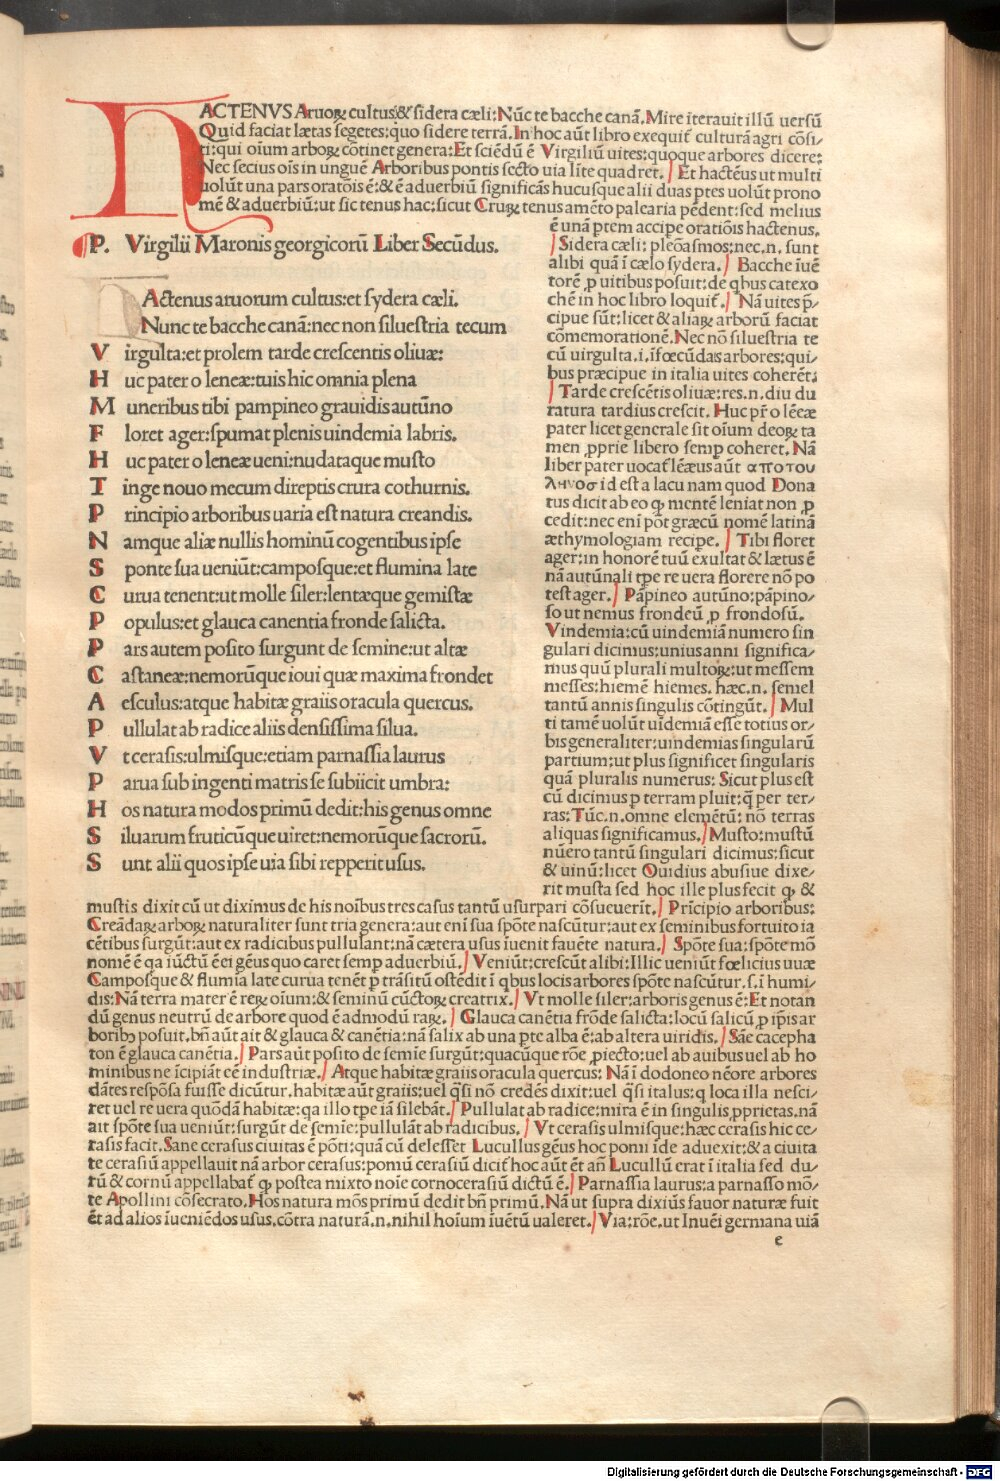 HACTENVS Aruoꝝ cultus:& sidera cæli: Nūc te bacche canā. Mire iterauit illū uersū
Quid faciat lætas segetes: quo sidere terrā. In hoc aūt libro exequit̃ culturā agri cōsi⸗
ti: qui oīum arboꝝ cōtinet genera: Et sciēdū ē Virgiliū uites: quoque arbores dicere:
Nec secius oīs in unguē Arboribus pontis secto uia lite quadret. / Et hactēus ut multi
uolūt una pars oratōis ē: & ē aduerbiū significās hucusque alii duas ptes uolūt prono
mē & aduerbiū: ut sic tenus hac: sicut Cruꝝ tenus amēto palearia pēdent: sed melius
P. Virgilii Maronis georgicorū Liber Secūdus.
HActenus aruorum cultus: et sydera cæli.
Nunc te bacche canā: nec non siluestria tecum
V irgulta: et prolem tarde crescentis oliuæ:
H uc pater o leneæ: tuis hic omnia plena
M uneribus tibi pampineo grauidis autūno
F loret ager: spumat plenis uindemia labris.
H uc pater o leneæ ueni: nudataque musto
T inge nouo mecum direptis crura cothurnis.
P rincipio arboribus uaria est natura creandis.
N amque aliæ nullis hominū cogentibus ipse
S ponte sua ueniūt: camposque: et flumina late
C urua tenent: ut molle siler: lentæque gemistæ
P opulus: et glauca canentia fronde salicta.
P ars autem posito surgunt de semine: ut altæ
C astaneæ: nemorūque ioui quæ maxima frondet
A esculus: atque habitæ graiis oracula quercus.
P ullulat ab radice aliis densissima silua.
V t cerasis: ulmisque: etiam parnassia laurus
P arua sub ingenti matris se subiicit umbra:
H os natura modos primū dedit: his genus omne
S iluarum fruticūque uiret: nemorūque sacrorū.
S unt alii quos ipse uia sibi repperit usus.
ē unā ptem accipe oratiōis hactenus.
/ Sidera cæli: pleōasmos: nec.n. sunt
alibi quā ī cælo sydera. / Bacche īuē
torē ꝓ uitibus posuit: de qbus catexo
chēn in hoc libro loquit̃. / Nā uites p̄
cipue sūt: licet & aliaꝝ arborū faciat
cōmemorationē. Nec nō siluestria te
cū uirgulta.i. īfœcūdas arbores: qui⸗
bus præcipue in italia uites coherēt:
/ Tarde crescētis oliuæ: res.n. diu du
ratura tardius crescit. Huc pr̄ o lēeæ
pater licet generale sit oīum deoꝝ ta
men ꝓprie libero semp coheret. Nā
liber pater uocat̃ lēæus aūt αποτου
ληνοσ id est a lacu nam quod Dona
tus dicit ab eo ꝙ mentē leniat non ꝓ
cedit: nec enī pōt græcū nomē latinā
æthymologiam recipe. / Tibi floret
ager: in honorē tuū exultat & lætus ē
nā autūnali tpe re uera florere nō po
test ager. / Pāpineo autūno: pāpino⸗
so ut nemus frondeū ꝓ frondosū.
Vindemia: cū uindemiā numero sin
gulari dicimus: unius anni significa⸗
mus quū plurali multoꝝ: ut messem
messes: hiemē hiemes. hæc.n. semel
tantū annis singulis cōtingūt. / Mul
ti tamē uolūt uīdemiā esse totius or⸗
bis generaliter: uindemias singularū
partium: ut plus significet singularis
quā pluralis numerus: Sicut plus est
cū dicimus p terram pluit: q̄ per ter⸗
ras: Tūc.n. omne elemētū: nō terras
aliquas significamus. / Musto: mustū
nūero tantū singulari dicimus: sicut
& uinū: licet Ouidius abusiue dixe⸗
rit musta sed hoc ille plus fecit ꝙ &
mustis dixit cū ut diximus de his noībus tres casus tantū usurpari cōsueuerīt. / Prīcipio arboribus:
Creādaꝝ arboꝝ naturaliter sunt tria genera: aut enī sua spōte nascūtur: aut ex seminibus fortuito ia
cētibus surgūt: aut ex radicibus pullulant: nā cætera usus īuenit fauēte natura. / Spōte sua: spōte mō
nomē ē qa iūctū ē ei gēus quo caret semp aduerbiū. / Veniūt: crescūt alibi: Illic ueniūt fœlicius uuæ
Camposque & flumīa late curua tenēt p trāsitū ostēdit ī qbus locis arbores spōte nascūtur. s. ī humi⸗
dis: Nā terra mater ē reꝝ oīum: & seminū cūctoꝝ creatrix. / Vt molle siler: arboris genus ē: Et notan
dū genus neutrū de arbore quod ē admodū raꝝ. / Glauca canētia frōde salicta: locū salicū ꝓ ip̄is ar
boribꝫ posuit. bn̄ aūt ait & glauca & canētia: nā salix ab una pte alba ē: ab altera uiridis. / Sāe cacepha
ton ē glauca canētia. / Pars aūt posito de semīe surgūt: quacūque rōe ꝓiecto: uel ab auibus uel ab ho
minibus ne īcipiāt eē industriæ. / Atque habitæ graiis oracula quercus: Nā ī dodoneo nēore arbores
dātes respōsa fuisse dicūtur. habitæ aūt graiis: uel q̄si nō credēs dixit: uel q̄si italus: q loca illa nesci⸗
ret uel re uera quōdā habitæ: qa illo tpe iā silebāt. / Pullulat ab radice: mira ē in singulis ꝓprietas. nā
ait spōte sua ueniūt: surgūt de semīe: pullulāt ab radicibus. / Vt cerasis ulmisque: hæc cerasis hic ce⸗
rasis facit. Sane cerasus ciuitas ē pōti: quā cū delesset Lucullus gēus hoc pomi īde aduexit: & a ciuita
te cerasiū appellauit nā arbor cerasus: pomū cerasiū dicit̃ hoc aūt ēt añ Lucullū erat ī italia sed du⸗
rū & cornū appellabat̃ ꝙ postea mixto noīe cornocerasiū dictū ē. / Parnassia laurus: a parnasso mō⸗
te Apollini cōsecrato. Hos natura mōs primū dedit bn̄ primū. Nā ut supra dixiūs fauor naturæ fuit
ēt ad alios īueniēdos usus. cōtra naturā.n. nihil hoīum īuētū ualeret. / Via: rōe. ut Inuēi germana uiā
e
Digitalisierung gefördert durch die Deutsche Forschungsgemeinschaft - DFG